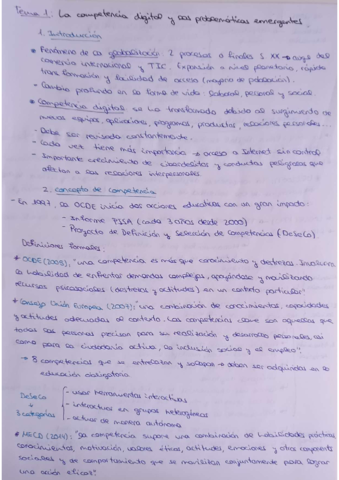 Tema 1: La competencia digital y sus problemáticas emergentes
1. Introducción
* Fenómeno de la globalización: 2 procesos a finales S. XX → auge del
comercio internacional y TIC. Expansión a nivel planetario, rápida
transformación y facilidad de acceso (mayoría de población).
- Cambio profundo en la forma de vida: laboral, personal y social.
* Competencia digital: se ha transformado debido al surgimiento de
nuevos equipos, aplicaciones, programas, productos, relaciones personales...
- Debe ser revisada constantemente.
- Cada vez tiene más importancia → acceso a Internet sin control
- Importante crecimiento de ciberdelitos y conductas peligrosas que
afectan a las relaciones interpersonales.
2. Concepto de competencia
- En 1997, la OCDE inicia dos acciones educativas con un gran impacto:
- Informe PISA (cada 3 años desde 2000)
- Proyecto de Definición y Selección de Competencias (DeSeCo)
Definiciones formales:
* OCDE (2005): "una competencia es más que conocimientos y destrezas. Involucra
la habilidad de enfrentar demandas complejas, apoyándose y movilizando
recursos psicosociales (destrezas y actitudes) en un contexto particular"
* Consejo Unión Europea (2007): "una combinación de conocimientos, capacidades
y actitudes adecuadas al contexto. Las competencias clave son aquellas que
todas las personas precisan para su realización y desarrollo personales, así
como para la ciudadanía activa, la inclusión social y el empleo".
→ 8 competencias que se entrelazan y solapan → deben ser adquiridas en la
educación obligatoria.
DeSeCo
↓
3 categorías
- usar herramientas interactivas
- interactuar en grupos heterogéneos
- actuar de manera autónoma
* MECD (2014): "la competencia supone una combinación de habilidades prácticas,
conocimientos, motivación, valores éticos, actitudes, emociones y otros componentes
sociales y de comportamiento que se movilizan conjuntamente para lograr
una acción eficaz"